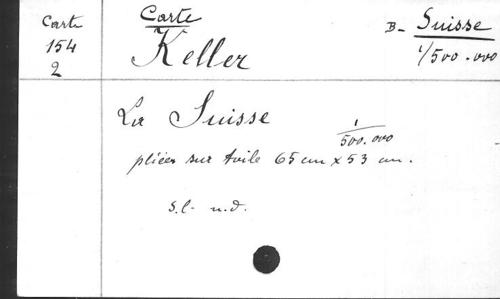 Carte
154
2
Carte
Keller
B- Suisse
1/500.000
La Suisse 1/500.000
pliée sur toile 65 cm x 53 cm.
s.l. n.d.